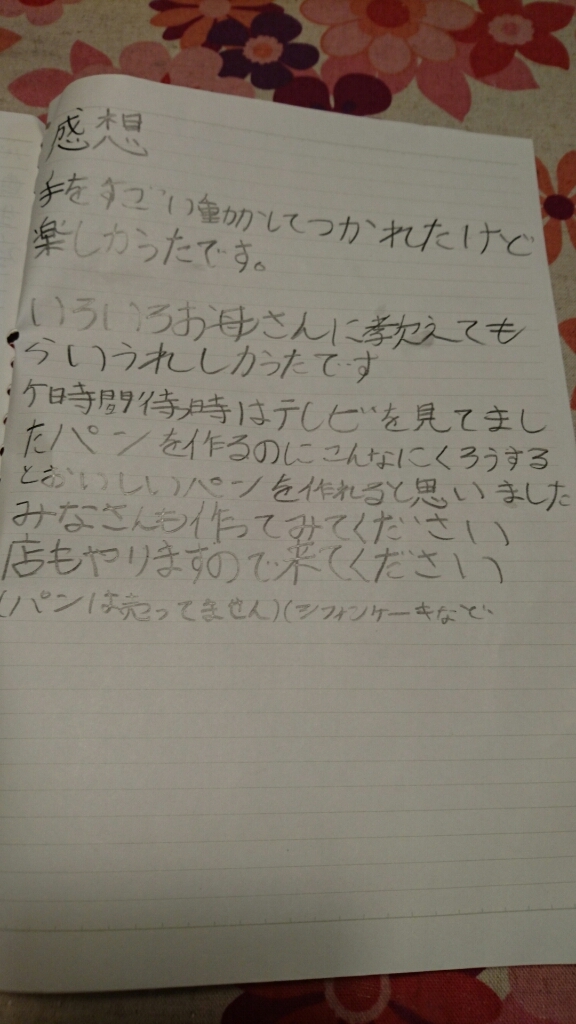 感想
手をすごい動かしてつかれたけど
楽しかったです。
いろいろお母さんに教えても
らいうれしかったです
時間待つ時はテレビを見てまし
たパンを作るのにこんなにくろうする
とおいしいパンを作れると思いました
みなさんも作ってみてください
店もやりますので来てください
(パンは売ってません)(シフォンケーキなど